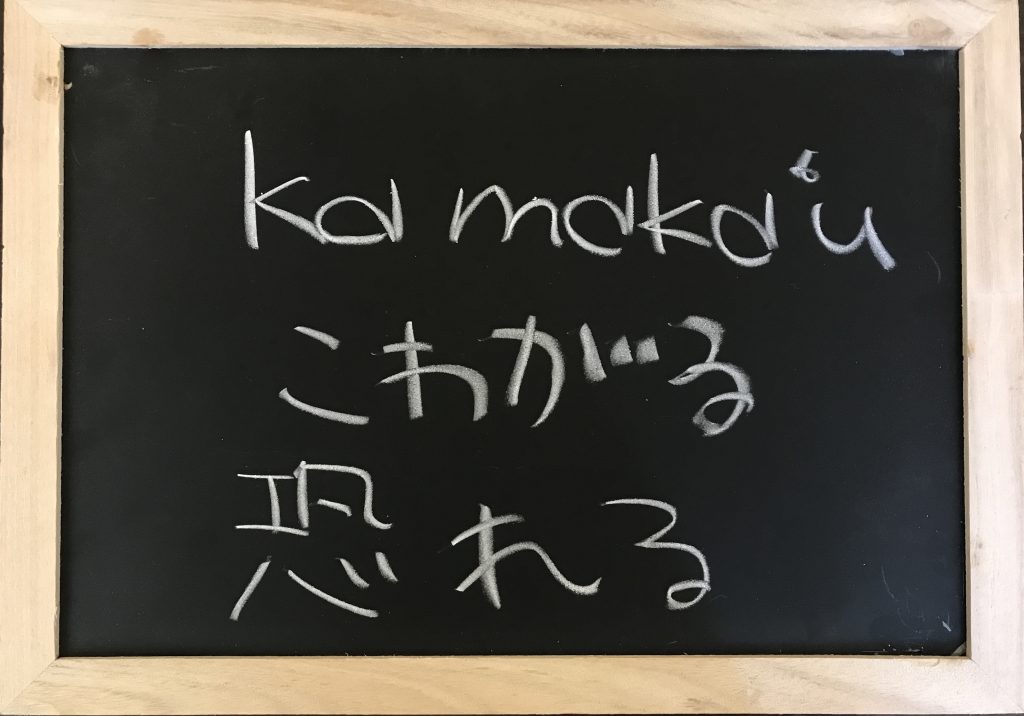 ka maka‘u
こわがる
恐れる